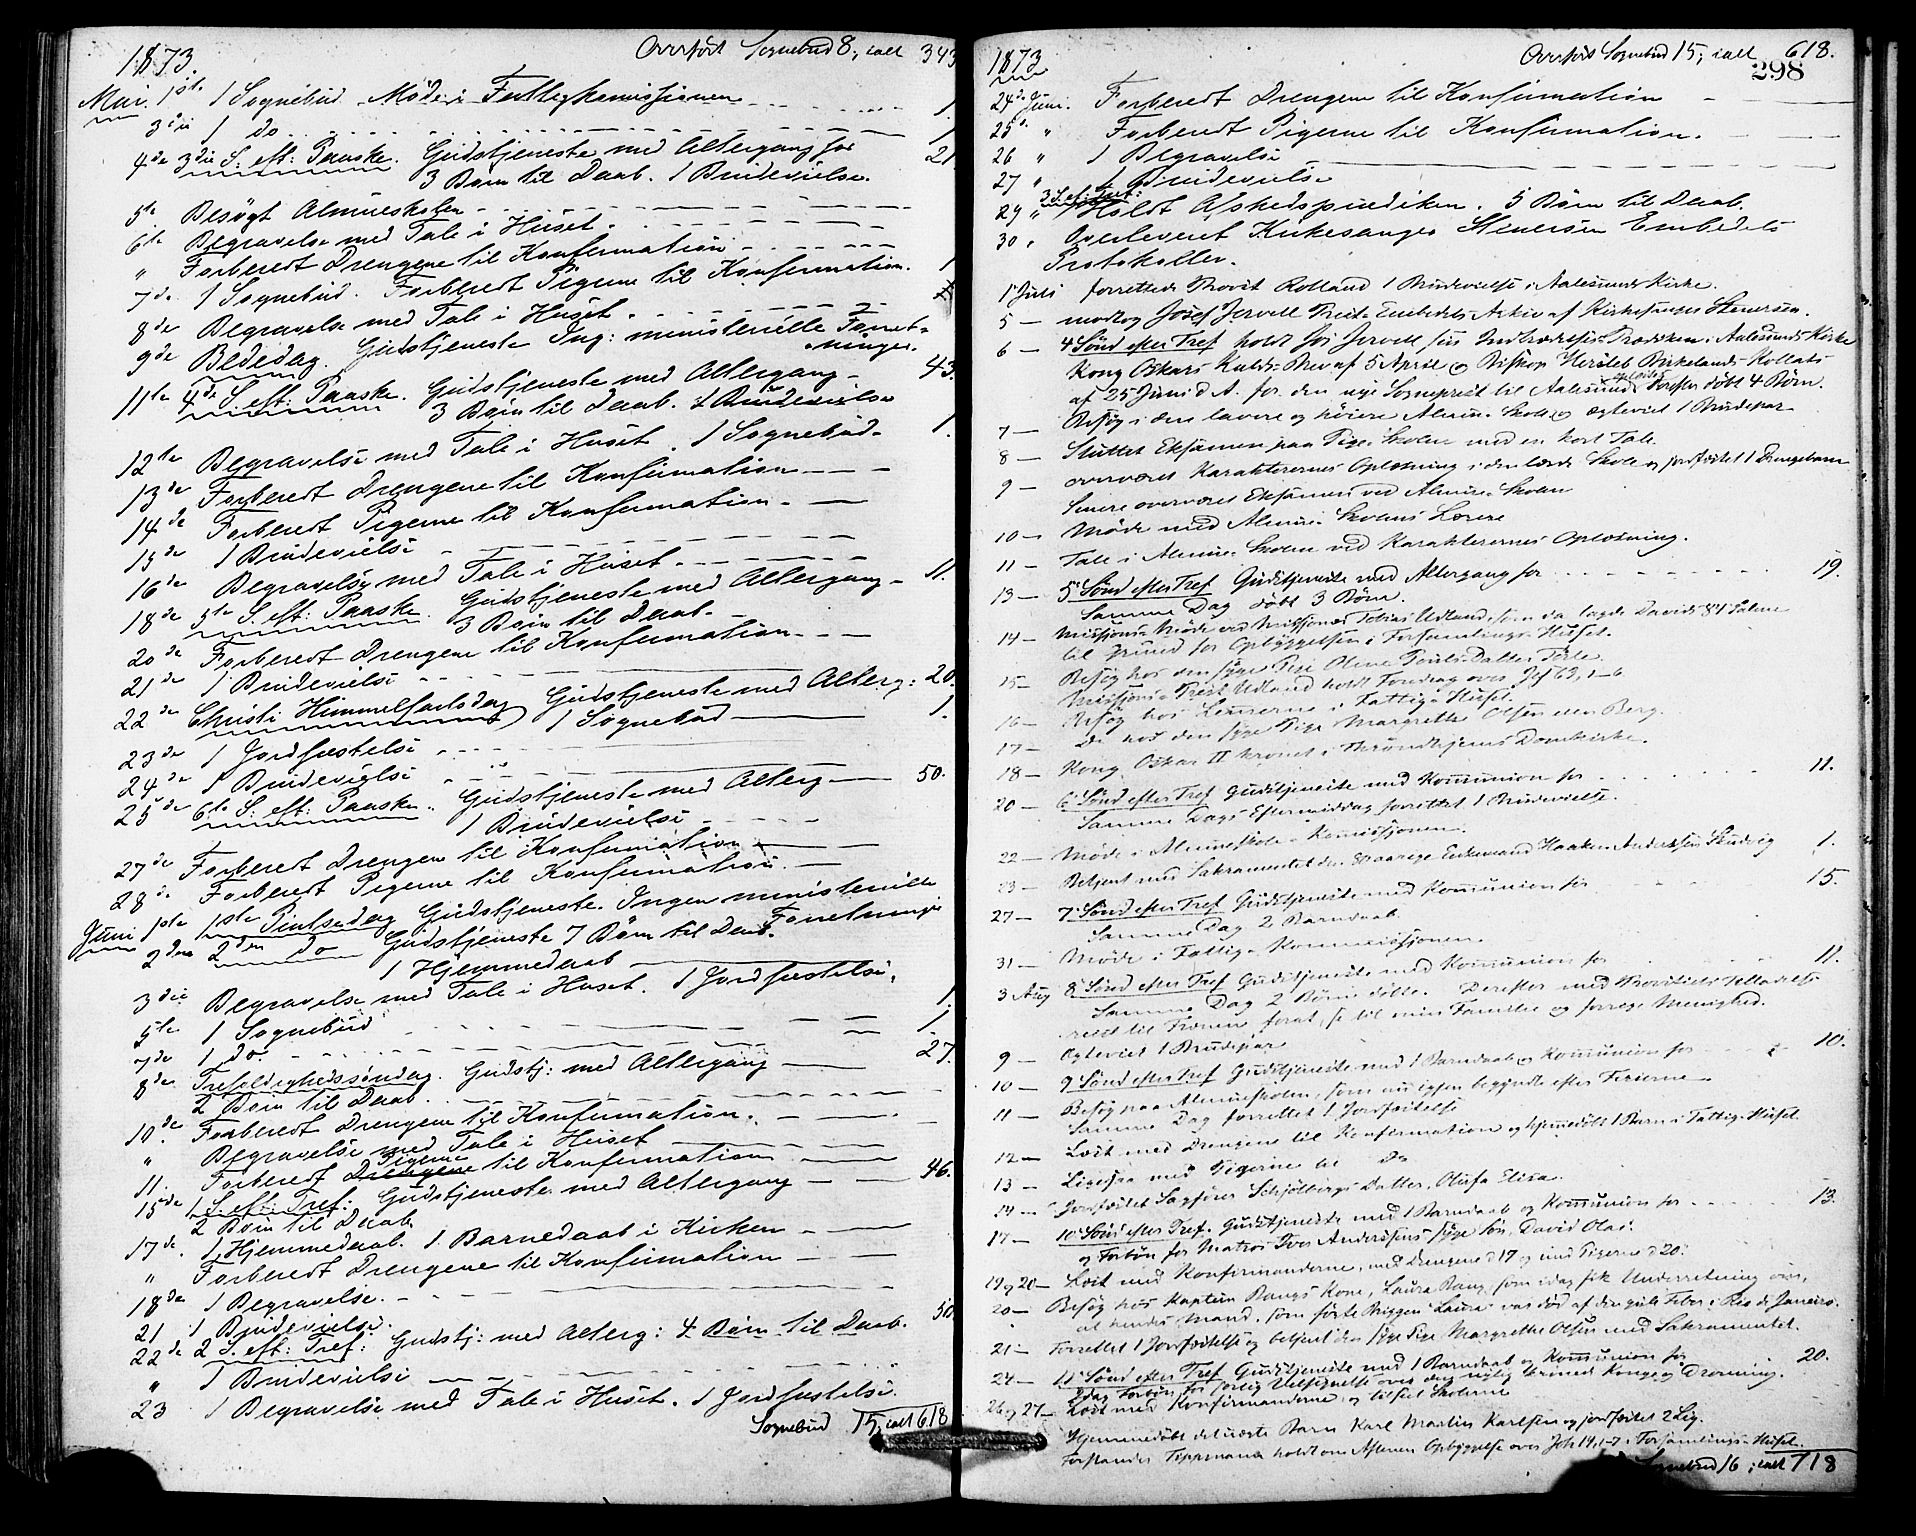 1873. Overført Sognebud 8, ialt 343
Mai. 1ste 1 Sognebud. Møde i Fattigkommissionen 1.
3die 1 do 1
4de 3die S. eft: Paaske. Gudstjeneste med Altergang for 21
3 Børn til Daab. 1 Brudevielse.
5te Besøgt Almueskolen
6te Begravelse med Tale i Huset.
" Forberedt Drengene til Konfirmation
7de 1 Sognebud. Forberedt Pigerne til Konfirmation. 1
8de Begravelse med Tale i Huset.
9de Bededag. Gudstjeneste Ing: ministerielle Forret-
ninger.
11te 4de S. eft: Paaske. Gudstjeneste med Altergang 43.
3 Børn til Daab. 1 Brudevielse
12te Begravelse med Tale i Huset. 1 Sognebud. 1.
13de Forberedt Drengene til Konfirmation
14de Forberedt Pigerne til Konfirmation.
15de 1 Brudevielse
16de Begravelse med Tale i Huset.
18de 5te S. eft: Paaske. Gudstjeneste med Altergang 11.
3 Børn til Daab.
20de Forberedt Drengene til Konfirmation
21de 1 Brudevielse
22de Christi Himmelfartsdag Gudstjeneste med Alterg: 20.
1 Sognebud 1.
23de 1 Jordfæstelse
24de 1 Brudevielse
25de 6te S. eft: Paaske. Gudstjeneste med Alterg 50.
1 Brudevielse
27de Forberedt Drengene til Konfirmation
28de Forberedt Pigerne til Konfirmation
Juni 1ste 1ste Pintsedag Gudstjeneste. Ingen ministerielle
Forretninger
2den 2den do Gudstjeneste 7 Børn til Daab.
1 Hjemmedaab
3die Begravelse med Tale i Huset. 1 Jordfæstelse.
5te 1 Sognebud 1.
7de 1 do. 1.
8de Trefoldighedssøndag. Gudstj: med Altergang 27.
2 Børn til Daab.
10de Forberedt Drengene til Konfirmation.
" Begravelse med Tale i Huset
11. Forberedt Pigerne Drengene til Konfirmation
15de 1 S. eft: Tref: Gudstjeneste med Altergang 46.
2 Børn til Daab
17de 1 Hjemmedaab. 1 Barnedaab i Kirken
" Forberedt Drengene til Konfirmation
18de 1 Begravelse.
21 1 Brudevielse.
22de 2 S. eft: Tref: Gudstj: med Alterg: 4 Børn til Daab. 50.
" 1 Brudevielse
23 1 Begravelse med Tale i Huset. 1 Jordfæstelse.
Sognebud 15, ialt 618
1873 Overført Sognebud 15, ialt 618.
298
24de Juni. Forberedt Drengene til Konfirmation
25 " Forberedt Pigerne til Konfirmation.
26 " 1 Begravelse
27 " 1 Brudevielse
3 S. ef: Tref:
29 " Holdt Afskedsprædiken. 5 Børn til Daab.
30 " Overleveret Kirkesanger Stenersen Embedets
Protokoller.
1 Juli forrettede Provst Rolland 1 Brudevielse i Aalesunds Kirke.
5 — modtog Josef Jervell Præste-Embedets Arkiv af Kirkesanger Stenersen.
6 — 4 Sønd efter Tref holdt Jos Jervell sin Indtrædelses-Prædiken i Aalesunds Kirke
Kong Oskars Kalds-Brev af 5 April og Biskop Hersleb Birkelands Kollats
af 25 Juni d. A. for den nye Sogneprest til Aalesund oplæstes Derefter døbt 4 Børn.
7 — Besøg i den lavere og høiere Almue-Skole, og ægteviet 1 Brudepar
8 — Sluttet Eksamen paa Pige-Skolen med en kort Tale.
9 — overværet Karakterernes Oplæsning i den lærde Skole og jordfæstet 1 Drengebarn
Senere overværet Eksamen ved Almue-Skolen
10 — Møde med Almue-Skolens Lærere
11 — Tale i Almue-Skolen ved Karakterernes Oplæsning.
13 — 5 Sønd efter Tref Gudstjeneste med Altergang for 19.
Samme Dag døbt 3 Børn.
14 — Missions-Møde ved Missionær Tobias Udland, som da lagde Davids 84 Salme
til Grund for Opbyggelsen i Forsamlings-Huset.
15 — Besøg hos den syge Pige Oline Pouls-Datter
Missions-Prest Udland holdt Foredrag over Jes 63, 1-6
16 — Besøg hos Lemmerne i Fattig-Huset
17 — Do hos den syge Pige Margrethe Olsen Berg.
18 — Kong Oskar II kronet i Throndhjems Domkirke.
20 — 6 Sønd efter Tref Gudstjeneste med Kommunion for 11.
Samme Dags Eftermiddag forrettet 1 Brudevielse.
22 — Møde i Almueskole-Kommissjonen.
23 — Betjent med Sakramentet den aarige Enkemand Haaken Anderssen 1.
27 — 7 Sønd efter Tref Gudstjeneste med Kommunion for 15.
Samme Dag 2 Barndaab.
31 — Møde i Fattig-Kommissjonen.
3 Aug 8 Sønd efter Tref Gudstjeneste med Kommunion for 11.
Samme Dag 2 Børn døbte. Derefter med Provstiets Tilladelse
reist til for at se til min Familie og forrige Menighed.
9 — Ægteviet 1 Brudepar
10 — 9 Sønd efter Tref Gudstjeneste med 1 Barndaab og Kommunion for 10.
11 — Besøg paa Almueskolen, som nu igjen begyndte efter Ferierne
Samme Dag forrettet 1 Jordfæstelse
12 — Læst med Drengene til Konfirmation og hjemmedøbt 1 Barn i Fattig-Huset
13 — Ligesaa med Pigerne til do
14 — Jordfæstet Sagfører Schjølbergs Datter, Olufa Elisa.
17 — 10 Sønd efter Tref. Gudstjeneste med 1 Barndaab og Kommunion for 13.
og Forbøn for Matros Iver Anderssens syge Søn, David Olai.
19 og 20 — Læst med Konfirmanderne, med Drengene d 17 og med Pigerne d 20.
20 — Besøg hos Kaptein Bangs Kone, Laura Bang, som idag fik Underretning om,
at hendes Mand, som førte Briggen "Laura" var død af den gule Feber i Rio de Janeiro.
21 — Forrettet 1 Jordfæstelse og betjent den syge Pige Margrethe Olsen med Sakramentet.
24 — 11 Sønd efter Tref Gudstjeneste med 1 Barndaab og Kommunion for 20.
Idag Forbøn for Velsignelse over den nylig kronede Konge og Dronning.
26 og 27 — Læst med Konfirmanderne, og tilseet Skolerne
Hjemmedøbt det uægte Barn Karl Martin Karlsen og jordfæstet 2 Lig.
Forstander Tippmann holdt om Aftenen Opbyggelse over Joh 19, 1-7 i Forsamlings-Huset.
Sognebud 16, ialt 718